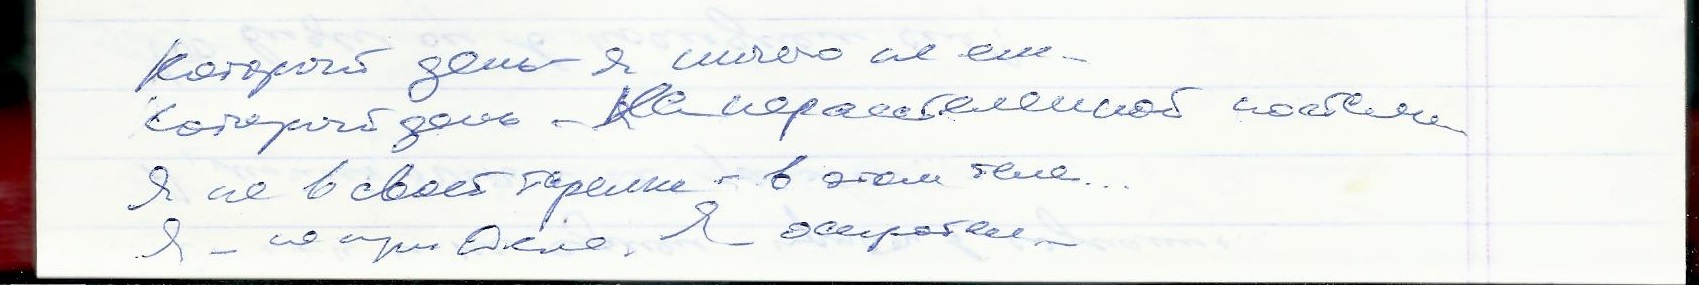 Который день я ничего не ем -
Который день - На нерасстеленной постели
Я не в своей тарелке - в этом теле...
Я - не при деле. Я - осиротел -